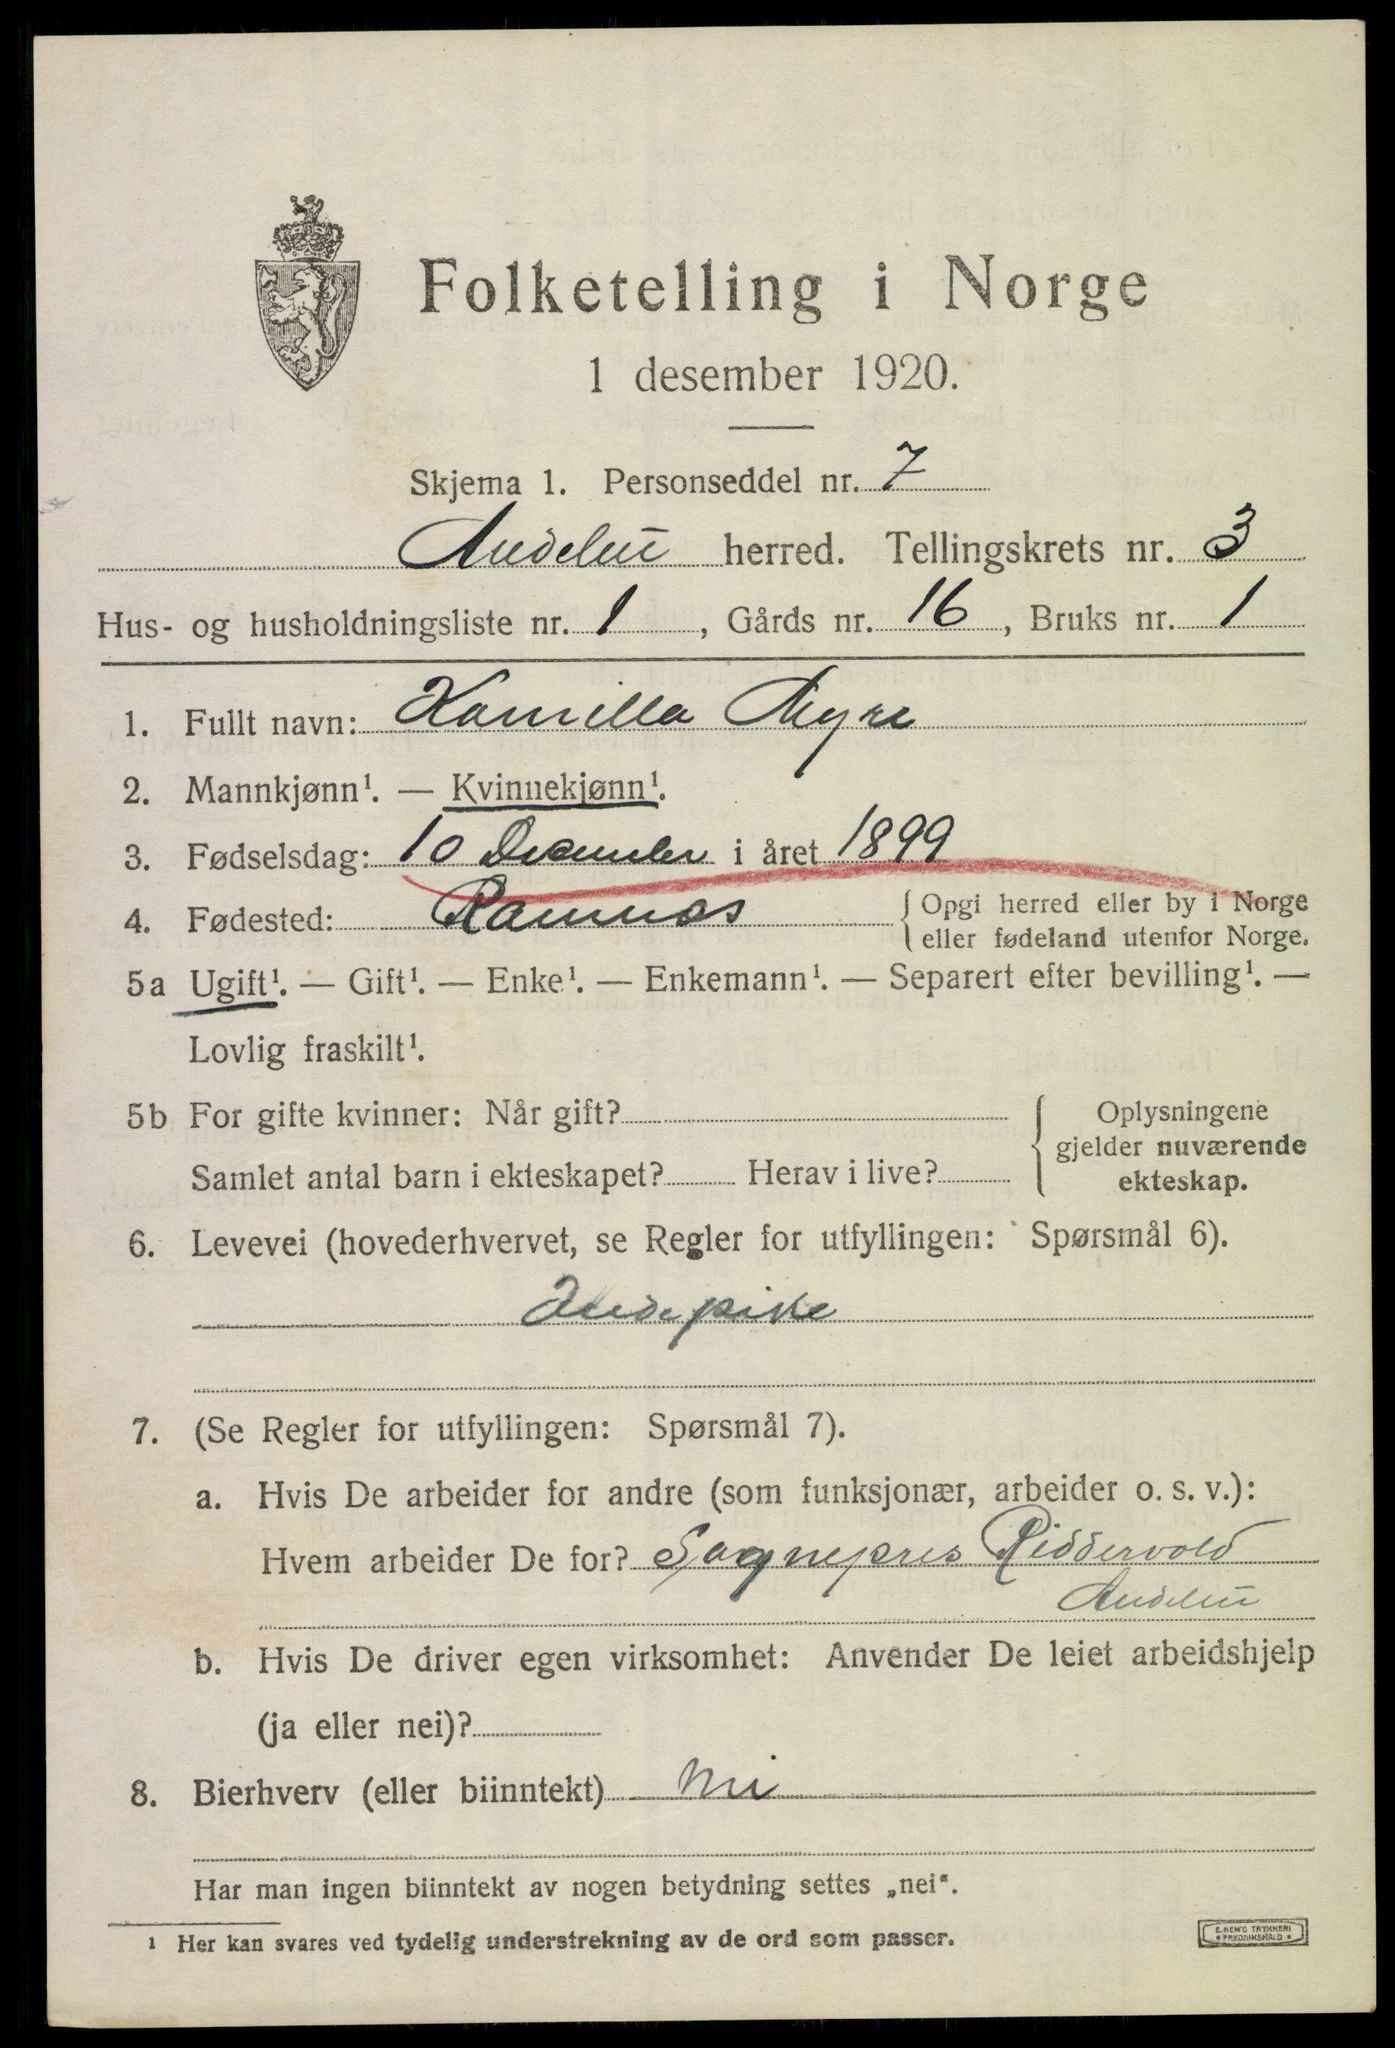 Folketelling i Norge
1 desember 1920.
Skjema 1. Personseddel nr. 7
Andebu herred. Tellingskrets nr. 3
Hus- og husholdningsliste nr. 1, Gårds nr. 16, Bruks nr. 1
1. Fullt navn: Kamilla Myre
2. Mannkjønn¹. — Kvinnekjønn¹.
3. Fødselsdag: 10 December i året 1899
4. Fødested: Ramnæs { Opgi herred eller by i Norge
eller fødeland utenfor Norge.
5a Ugift¹. — Gift¹. — Enke¹. — Enkemann¹. — Separert efter bevilling¹. —
Lovlig fraskilt¹.
5b For gifte kvinner: Når gift? { Oplysningene
gjelder nuværende
Samlet antal barn i ekteskapet? Herav i live? ekteskap.
6. Levevei (hovederhvervet, se Regler for utfyllingen: Spørsmål 6).
Indepike
7. (Se Regler for utfyllingen: Spørsmål 7).
a. Hvis De arbeider for andre (som funksjonær, arbeider o. s. v.):
Hvem arbeider De for? Sognepres Riddervold
Andebu
b. Hvis De driver egen virksomhet: Anvender De leiet arbeidshjelp
(ja eller nei)?
8. Bierhverv (eller biinntekt) nei
Har man ingen biinntekt av nogen betydning settes „nei“.
¹ Her kan svares ved tydelig understrekning av de ord som passer.
E. SEM'S TRYKKERI
FREDRIKSHALD